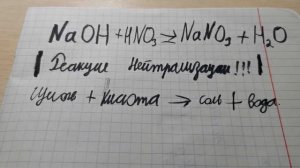 NaOH + HNO₃ → NaNO₃ + H₂O
Реакция Нейтрализации!!!
Щелочь + Кислота → соль + вода